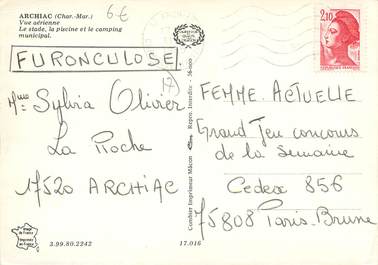 ARCHIAC (Char.-Mar.)
Vue aérienne
Le stade, la piscine et le camping
municipal.
6€
FURONCULOSE
(17)
Mme Sylvia Olivier
La Roche
17520 ARCHIAC
2,10
FEMME ACTUELLE
Grand Jeu concours
de la Semaine
Cedex 856
75808 Paris-Brune
Combier Imprimeur Mâcon
Repro. Interdite - 36-000
Image
de France
Imprimée
en France
3.99.80.2242
17.016